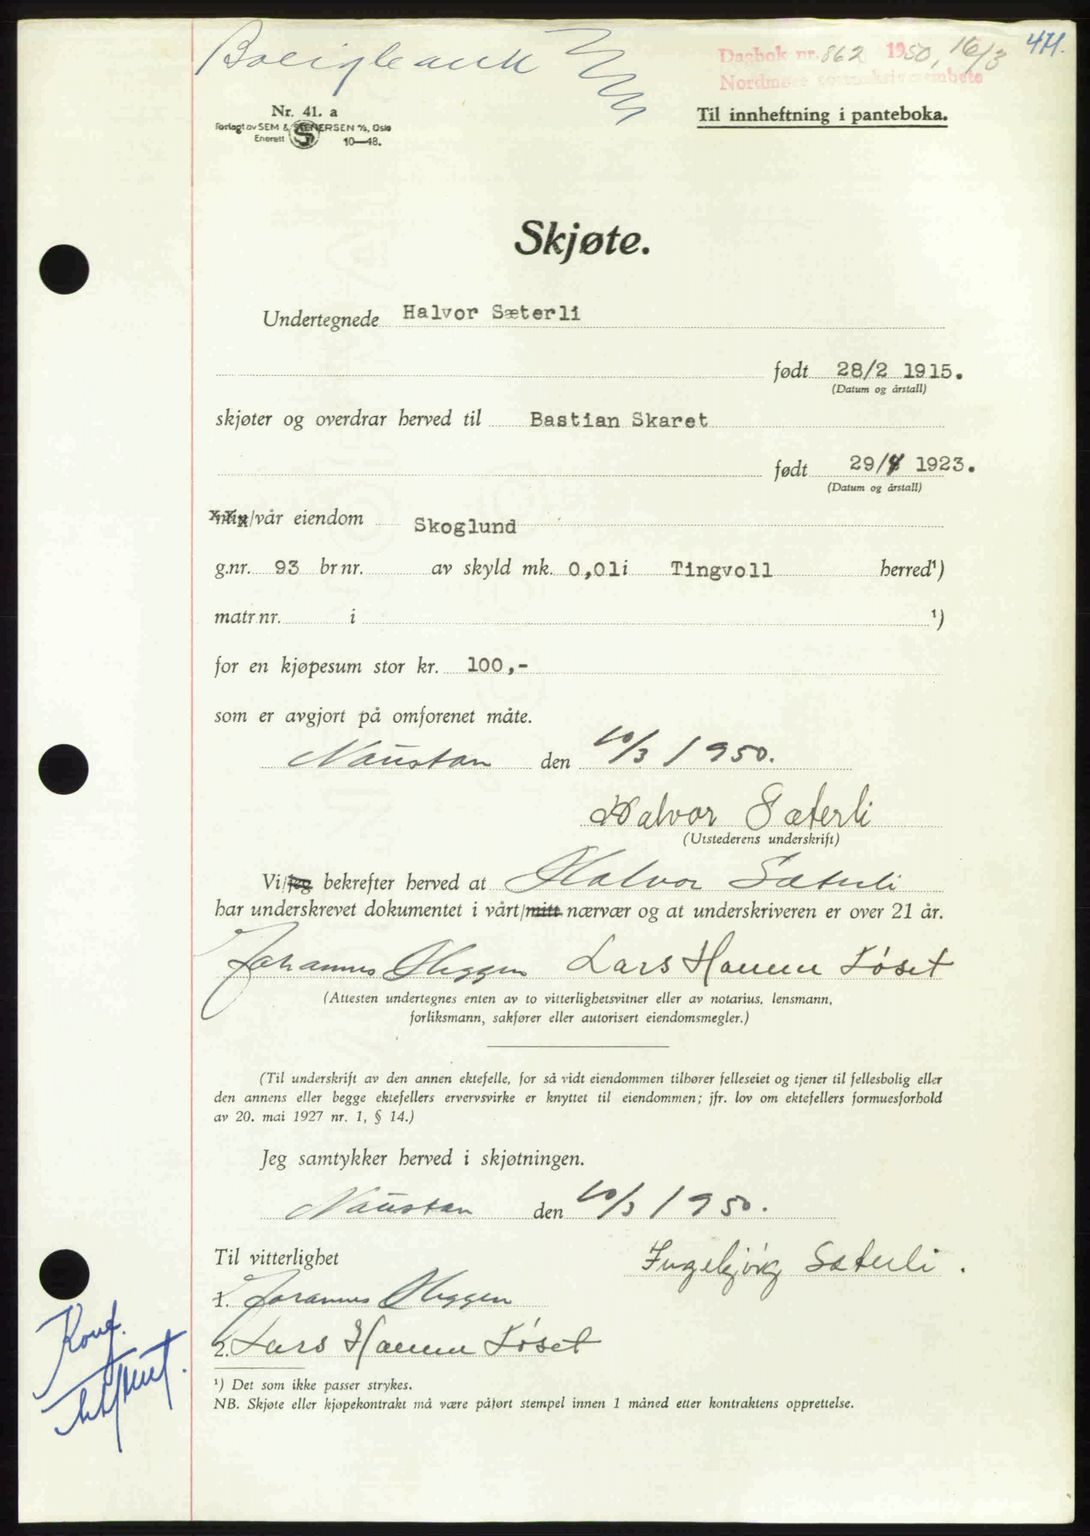 471.
Dagbok nr. 862 1950, 16/3
Nordmøre sorenskriverembete
Nr. 41. a
Forlagt av SEM & STENERSEN A/S, Oslo
Enerett 10—48.
Til innheftning i panteboka.
Skjøte.
Undertegnede Halvor Sæterli
født 28/2 1915.
(Datum og årstall)
skjøter og overdrar herved til Bastian Skaret
født 29/4 1923.
(Datum og årstall)
min/vår eiendom Skoglund
g.nr. 93 br nr. av skyld mk. 0,01 i Tingvoll herred¹)
matr.nr. i ¹)
for en kjøpesum stor kr. 100,-
som er avgjort på omforenet måte.
Naustan den 10/3 1950.
Halvor Sæterli
(Utstederens underskrift)
Vi/jeg bekrefter herved at Halvor Sæterli
har underskrevet dokumentet i vårt/mitt nærvær og at underskriveren er over 21 år.
Johannes Heggem Lars Løset
(Attesten undertegnes enten av to vitterlighetsvitner eller av notarius, lensmann,
forliksmann, sakfører eller autorisert eiendomsmegler.)
(Til underskrift av den annen ektefelle, for så vidt eiendommen tilhører felleseiet og tjener til fellesbolig eller
den annens eller begge ektefellers ervervsvirke er knyttet til eiendommen; jfr. lov om ektefellers formuesforhold
av 20. mai 1927 nr. 1, § 14.)
Jeg samtykker herved i skjøtningen.
Naustan den 10/3 1950.
Til vitterlighet
Ingebjørg Sæterli.
1. Johannes Heggem
2. Lars Løset
Konf.
¹) Det som ikke passer strykes.
NB. Skjøte eller kjøpekontrakt må være påført stempel innen 1 måned etter kontraktens opprettelse.